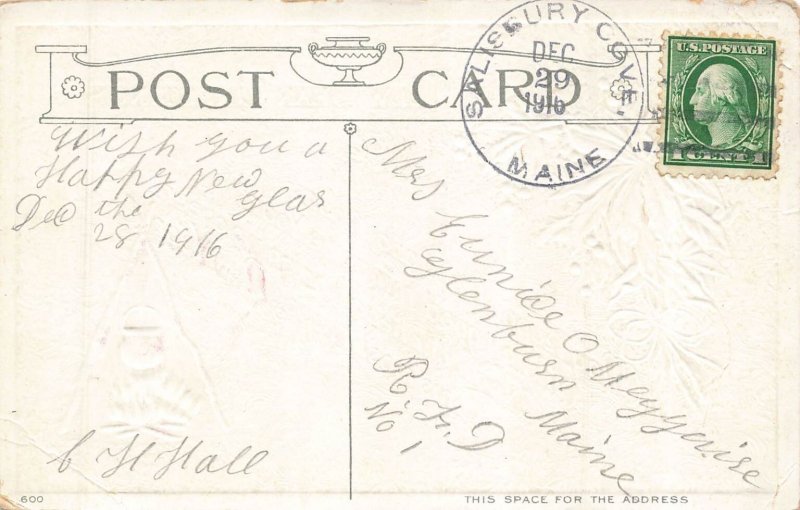 POST CARD
SALISBURY COVE.
DEC
29
1916
MAINE
U.S. POSTAGE
1 CENT 1
Wish you a
Happy New
Year
Dec the
28 1916
C H Hall
Mrs Eunice O
Glenburn Maine
R. F. D
No 1
600
THIS SPACE FOR THE ADDRESS